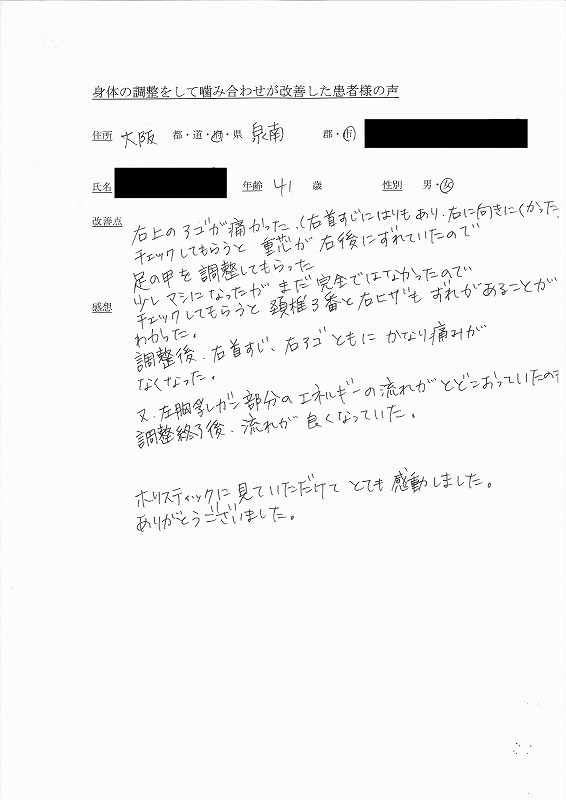 身体の調整をして噛み合わせが改善した患者様の声
住所 大阪 都・道・府・県 泉南 郡・市
氏名 年齢 41 歳 性別 男・女
改善点
右上のアゴが痛かった.(右首すじにはりもあり.右に向きにくかった
チェックしてもらうと 重芯が 右後にずれていたので
足の甲を調整してもらった
少しマシになったが まだ 完全ではなかったので
感想
チェックしてもらうと 頚椎3番と右ヒザも ずれがあることが
わかった。
調整後、右首すじ、右アゴ ともに かなり痛みが
なくなった。
又、左胸乳ガン部分のエネルギーの流れがとどこおっていたの
調整終了後、流れが 良くなっていた。
ホリスティックに見ていただけて とても 感動しました。
ありがとうございました。